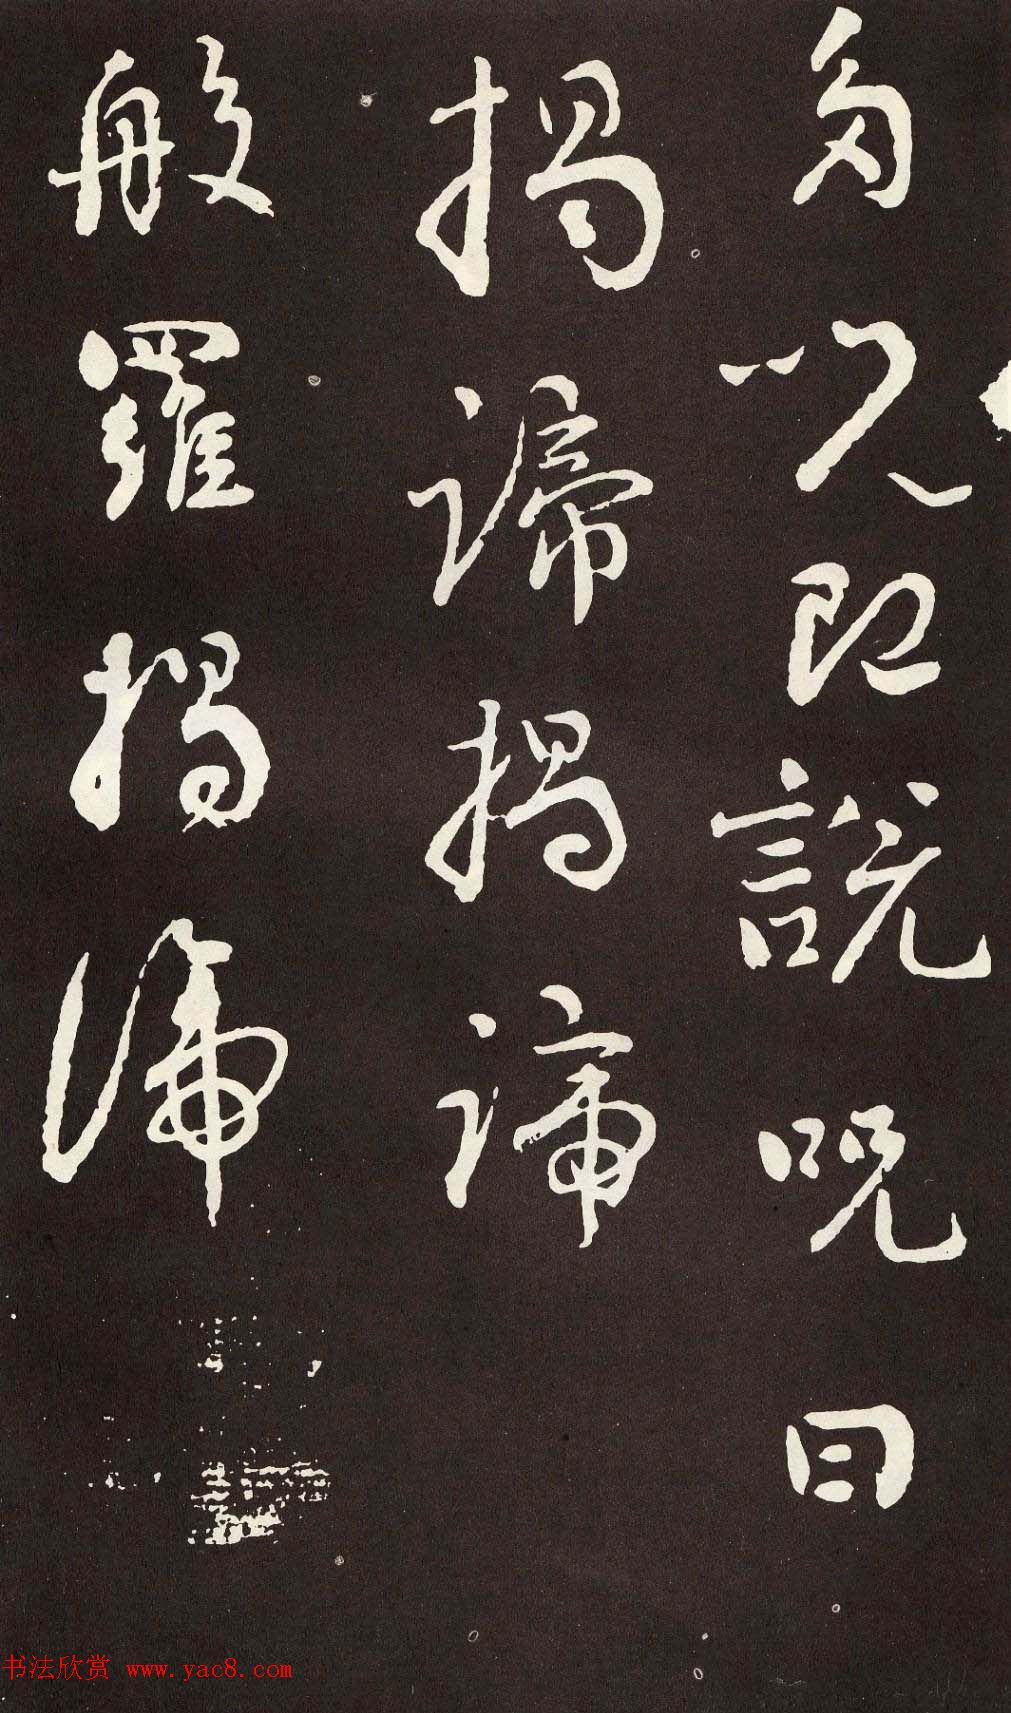 多呪即說呪曰
揭諦揭諦
般羅揭諦
书法欣赏 www.yac8.com